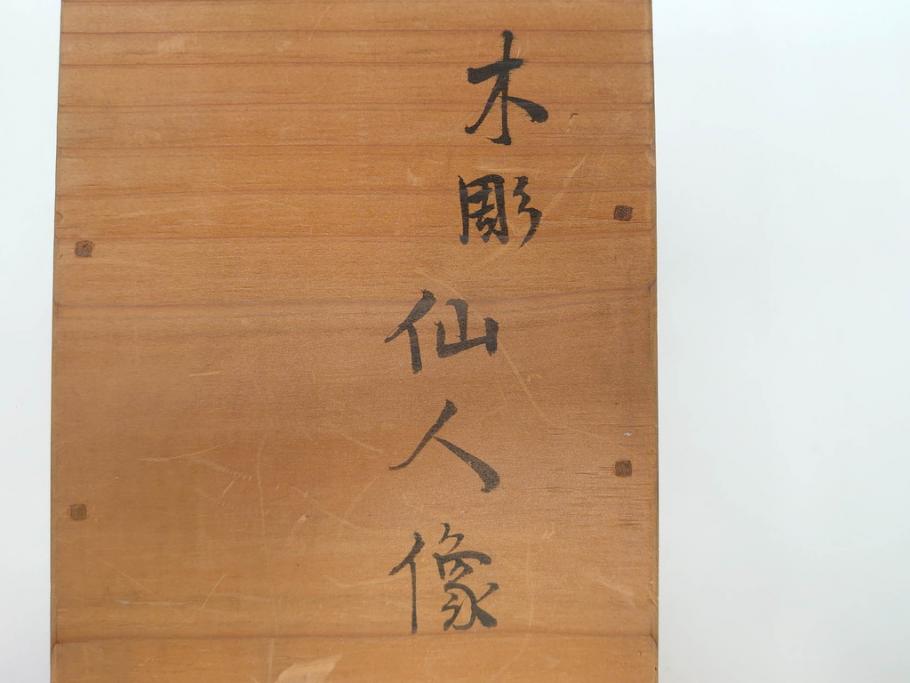 木彫
仙人像